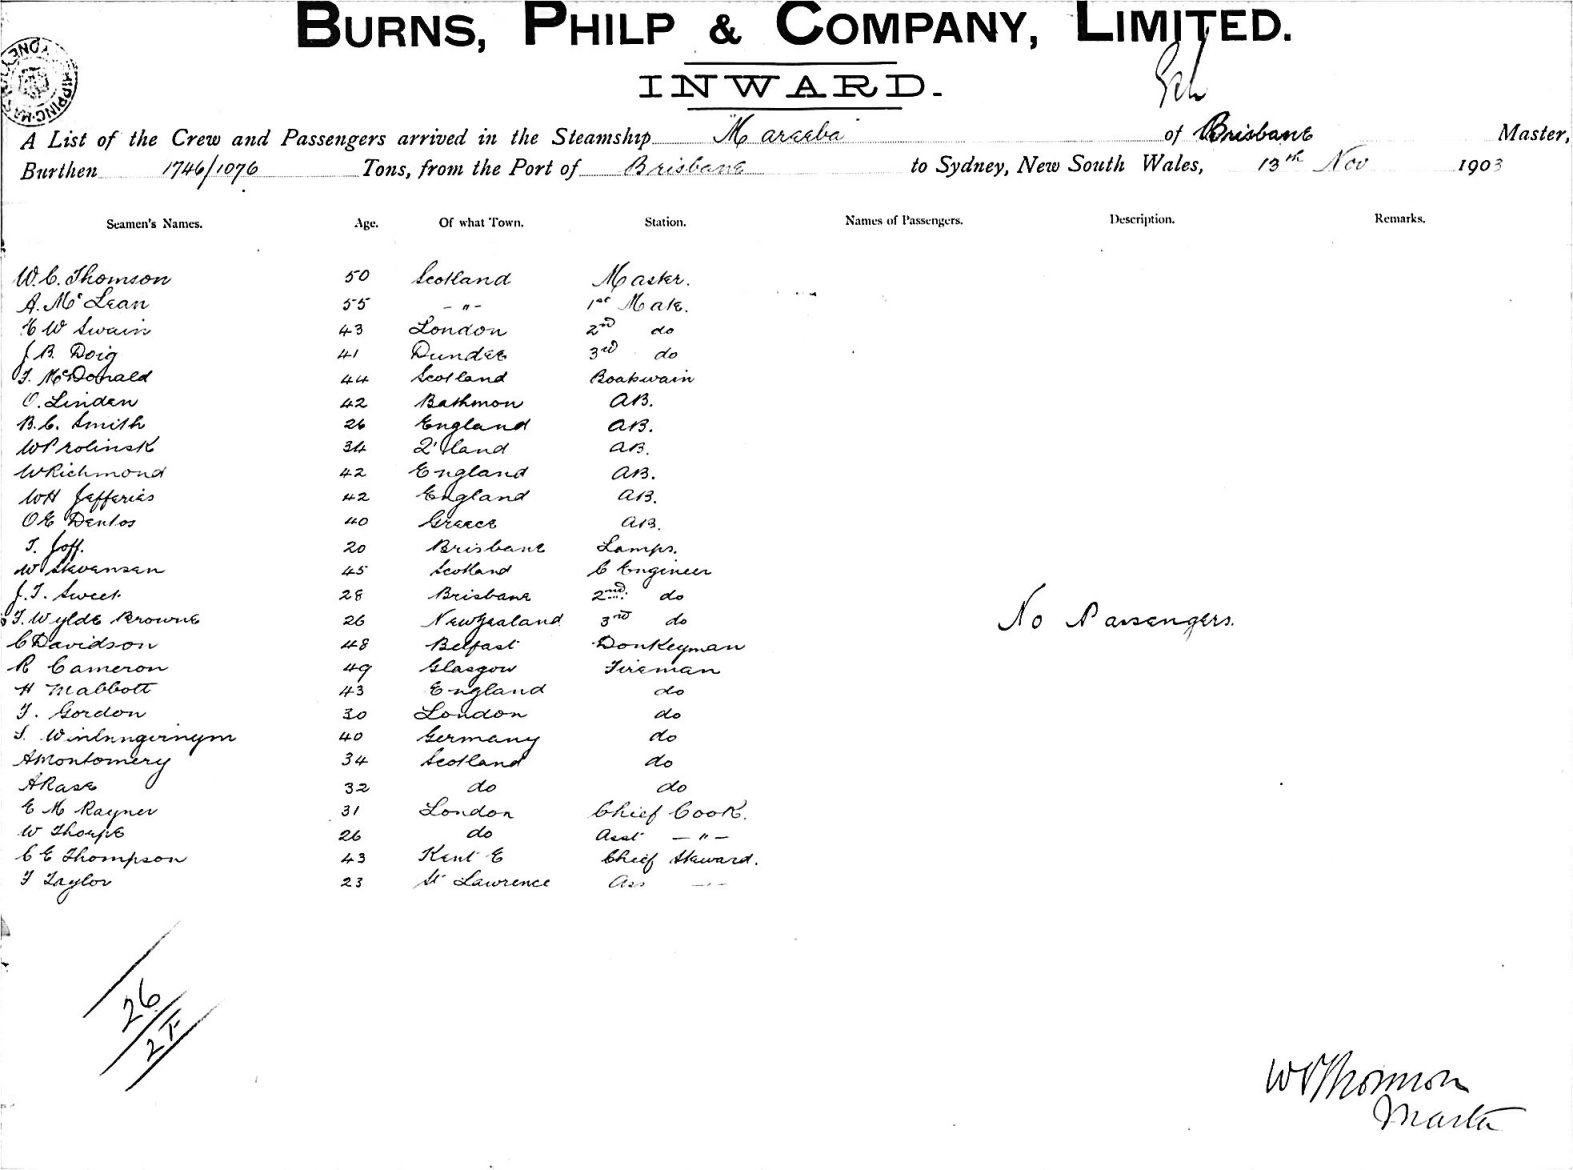 BURNS, PHILP & COMPANY, LIMITED.
INWARD.
A List of the Crew and Passengers arrived in the Steamship Mareeba of Brisbane Master,
Burthen 1746/1076 Tons, from the Port of Brisbane to Sydney, New South Wales, 13th Nov 1903
Seamen's Names. Age. Of what Town. Station. Names of Passengers. Description. Remarks.
W. C. Thomson 50 Scotland Master.
A. McLean 55 - " - 1st Mate.
W Swain 43 London 2nd do
J. B. Doig 41 Dundee 3rd do
T. McDonald 44 Scotland Boatswain
O. Linden 42 AB.
B. C. Smith 26 England AB.
W Prolinsk 34 Q'land AB.
W Richmond 42 England AB.
WH Jefferies 42 England AB.
OE Dentos 40 Greece AB.
T. Joff. 20 Brisbane Lamps.
W Stevensen 45 Scotland C Engineer
J. T. Sweet 28 Brisbane 2nd. do
T. Wylde Browne 26 New Zealand 3rd do
No Passengers.
C Davidson 48 Belfast Donkeyman
R Cameron 49 Glasgow Fireman
H Mabbott 43 England do
T. Gordon 30 London do
40 Germany do
A Montgomery 34 Scotland do
A Rase 32 do do
E M Rayner 31 London Chief Cook.
W Thorpe 26 do Asst - " -
C E Thompson 43 Kent E Chief Steward.
T Taylor 23 St Lawrence Ass - " -
26
27
WC Thomson
Master